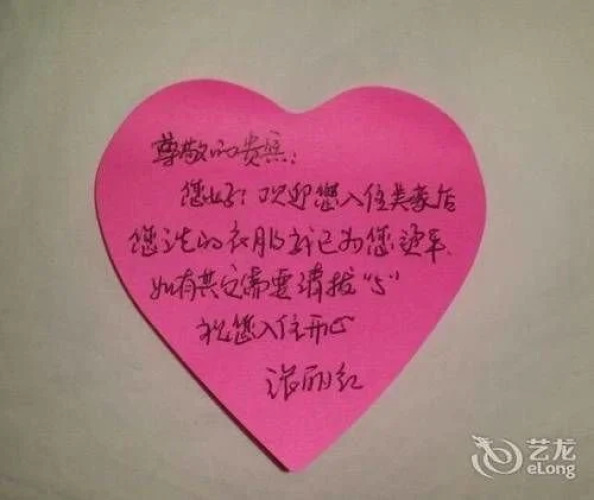 尊敬的贵宾:
您好!欢迎您入住美豪店
您洗的衣服我已为您烫平.
如有其它需要请拨“5”
祝您入住开心
张丽红
艺龙
eLong